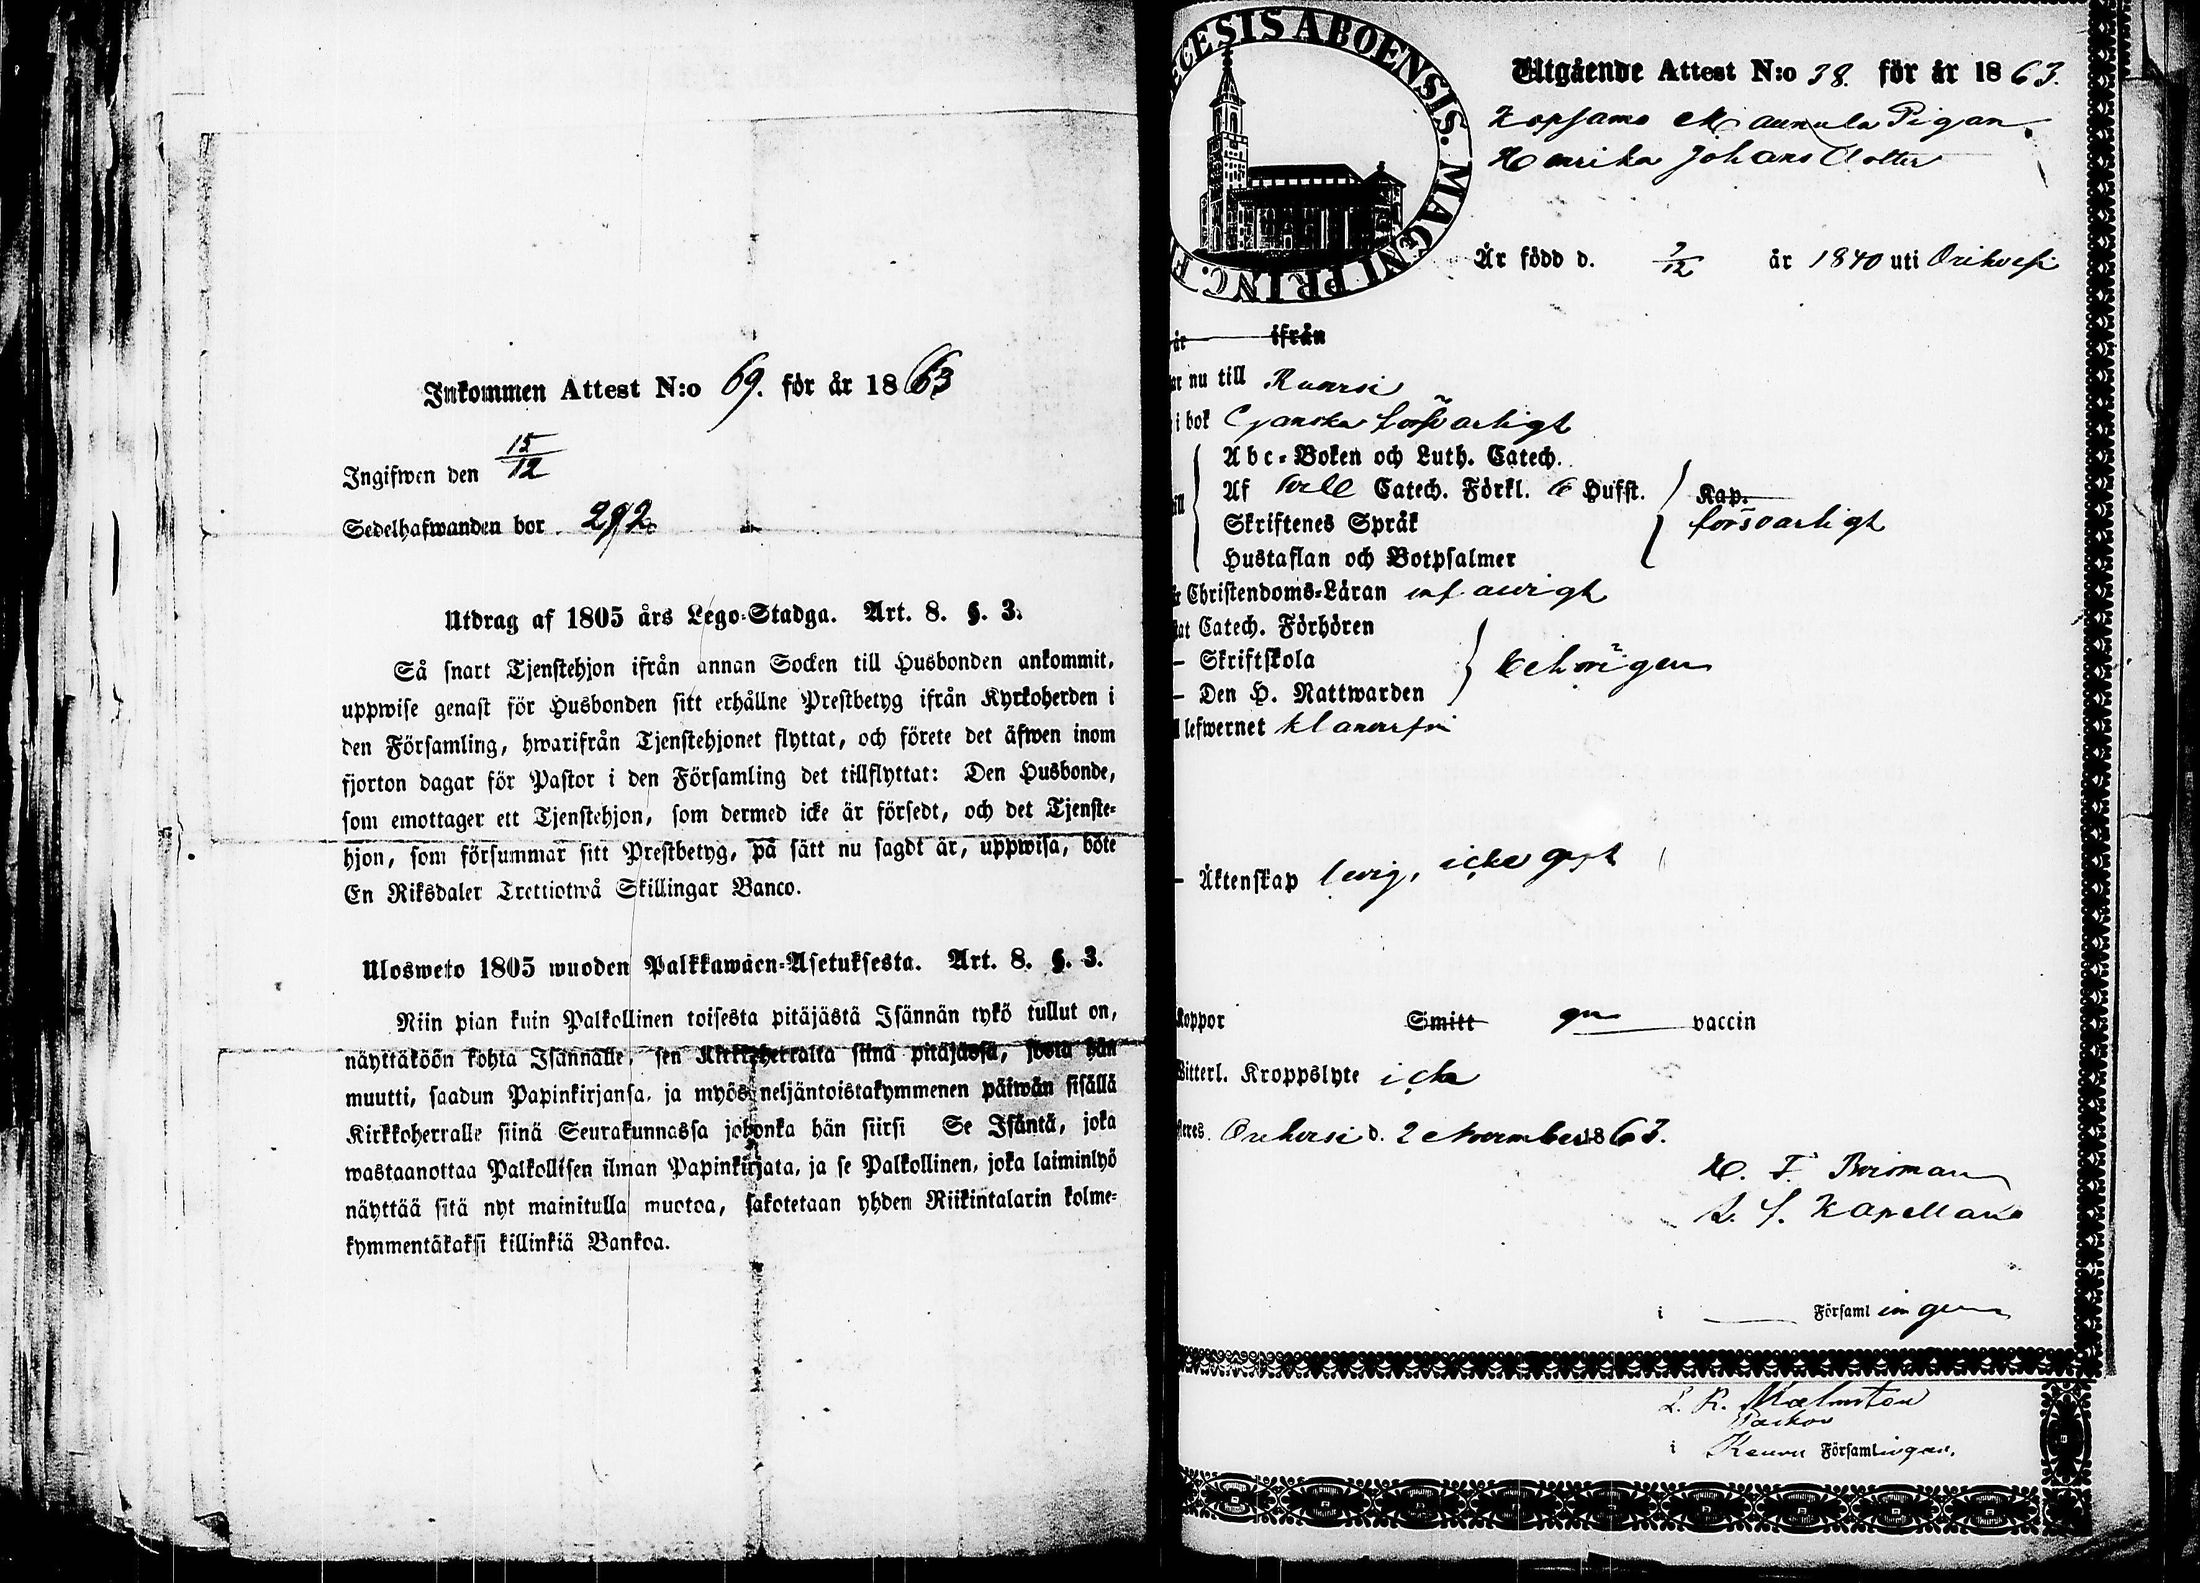 Inkommen Attest N:o 69. för år 1863
Ingifwen den 15/12
Sedelhafwanden bor 292.
Utdrag af 1805 års Lego-Stadga. Art. 8. §. 3.
Så snart Tjenstehjon ifrån annan Socken till Husbonden ankommit,
uppwise genast för Husbonden sitt erhållne Prestbetyg ifrån Kyrkoherden i
den Församling, hwarifrån Tjenstehjonet flyttat, och förete det äfwen inom
fjorton dagar för Pastor i den Församling det tillflyttat: Den Husbonde,
som emottager ett Tjenstehjon, som dermed icke är försedt, och det Tjenste-
hjon, som försummar sitt Prestbetyg, på sätt nu sagdt är, uppwisa, böte
En Riksdaler Trettiotwå Skillingar Banco.
Ulosweto 1805 wuoden Palkkawäen-Asetuksesta. Art. 8. §. 3.
Niin pian kuin Palkollinen toisesta pitäjästä Isännän tykö tullut on,
näyttäköön kohta Isännälle, sen Kirkkoherralta siinä pitäjässä, josta hän
muutti, saadun Papinkirjansa, ja myös neljäntoistakymmenen päiwän sisällä
Kirkkoherralle siinä Seurakunnassa johonka hän siirsi Se Isäntä, joka
wastaanottaa Palkollisen ilman Papinkirjata, ja se Palkollinen, joka laiminlyö
näyttää sitä nyt mainitulla muotoa, sakotetaan yhden Riikintalarin kolme-
kymmentäkaksi killinkiä Bankoa.
ECESIS ABOENSIS. MAGNI PRINC. F
Utgående Attest N:o 38. för år 1863.
Kopsamo Maunula Pigan
Henrika Johansdotter
Är född d. 7/12 år 1840 uti Orihvesi
är ifrån
ar nu till Ruovesi
i bok Ganska försvarligt
Abc-Boken och Luth. Catech.
Af Will Catech. Förkl. 6 Hufst. Kap.
Skriftenes Språk försvarligt
Hustaflan och Botpsalmer
Christendoms-Läran enfaldigt
at Catech. Förhören
— Skriftskola behörigen
— Den H. Nattwarden
lefwernet klanderfri
— Äktenskap ledig, icke gift
koppor Smitt gm vaccin
Witterl. Kroppslyte icke
teres. Orihvesi d. 2 November 1863.
Kapellans
i Församlingen
L. R. Malmsten
Pastor
i Keuru Församlingen.